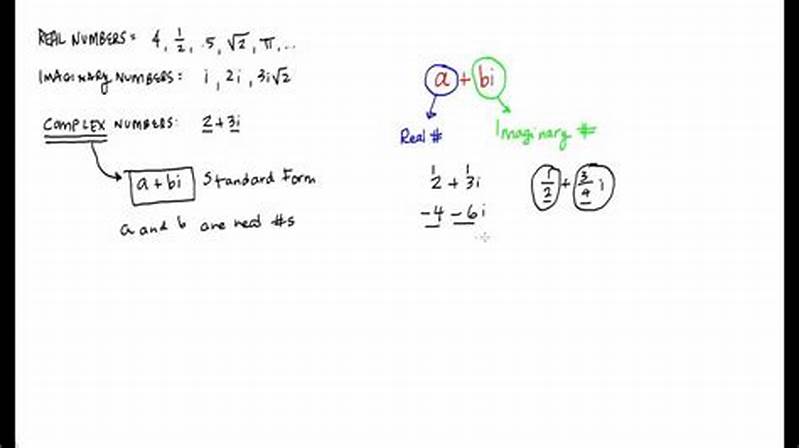 REAL NUMBERS: 4, 1/2, .5, √2, π, ...
IMAGINARY NUMBERS: i, 2i, 3i√2
COMPLEX NUMBERS: 2 + 3i
a + bi Standard Form
a and b are real #s
a + bi
Real # Imaginary #
2 + 3i
1/2 + 3/4 i
-4 - 6i